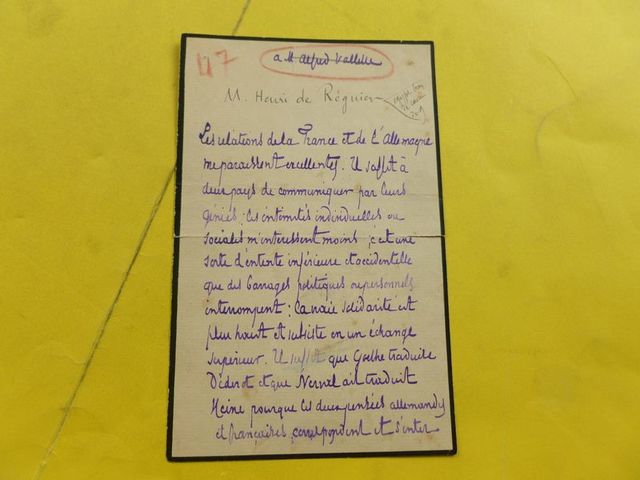 47
a M. Alfred Vallette
M. Henri de Régnier
Les relations de la France et de l'Allemagne
me paraissent excellentes. Il suffit à
deux pays de communiquer par leurs
génies ; les intimités individuelles ou
sociales m'intéressent moins ; c'est une
sorte d'entente inférieure et accidentelle
que des barrages politiques ou personnels
interrompent ; la vraie solidarité est
plus haut et subsiste en un échange
supérieur. Il suffit que Goethe traduise
Diderot et que Nerval ait traduit
Heine pour que les deux pensées allemandes
et françaises correspondent et s'inter